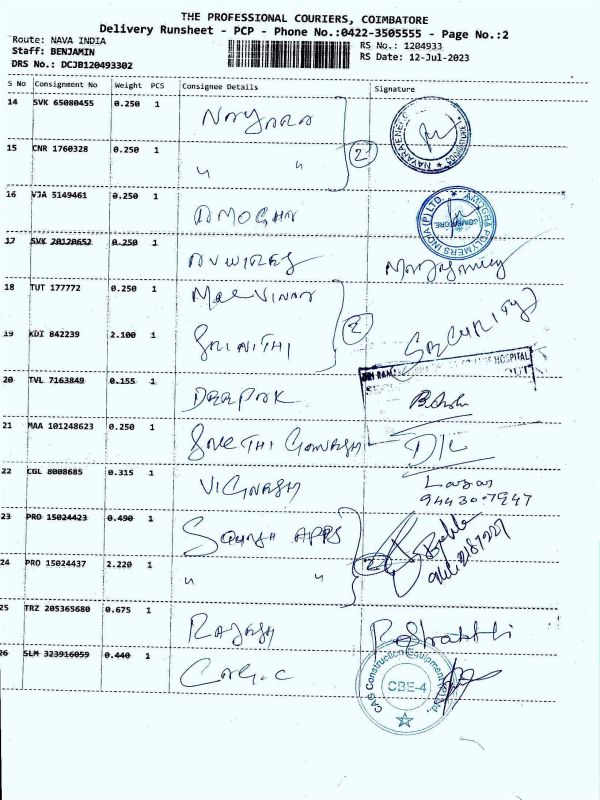 THE PROFESSIONAL COURIERS, COIMBATORE
Delivery Runsheet - PCP - Phone No.:0422-3505555 - Page No.:2
Route: NAVA INDIA
RS No.: 1204933
Staff: BENJAMIN
RS Date: 12-Jul-2023
DRS No.: DCJB120493302
S No Consignment No Weight PCS Consignee Details Signature
14 SVK 65080455 0.250 1 NAYARA
15 CNR 1760328 0.250 1 " " 2
16 VJA 5149461 0.250 1 AMOGHA AMOGHA POLYMERS INDIA (P) LTD. COIMBATORE
17 SVK 20120652 0.250 1
18 TUT 177772 0.250 1
19 KDI 842239 2.100 1 SRINITHI 2 SECURITY
HOSPITAL
20 TVL 7163849 0.155 1 DEEPAK
21 MAA 101248623 0.250 1 D/L
22 CGL 8008685 0.315 1 VIGNESH
23 PRO 15024423 0.490 1 APPS
24 PRO 15024437 2.220 1 " " 2
25 TRZ 205365680 0.675 1 RAJESH
26 SLM 323916059 0.440 1 CAG Construction Equipment Pvt Ltd., CBE-4